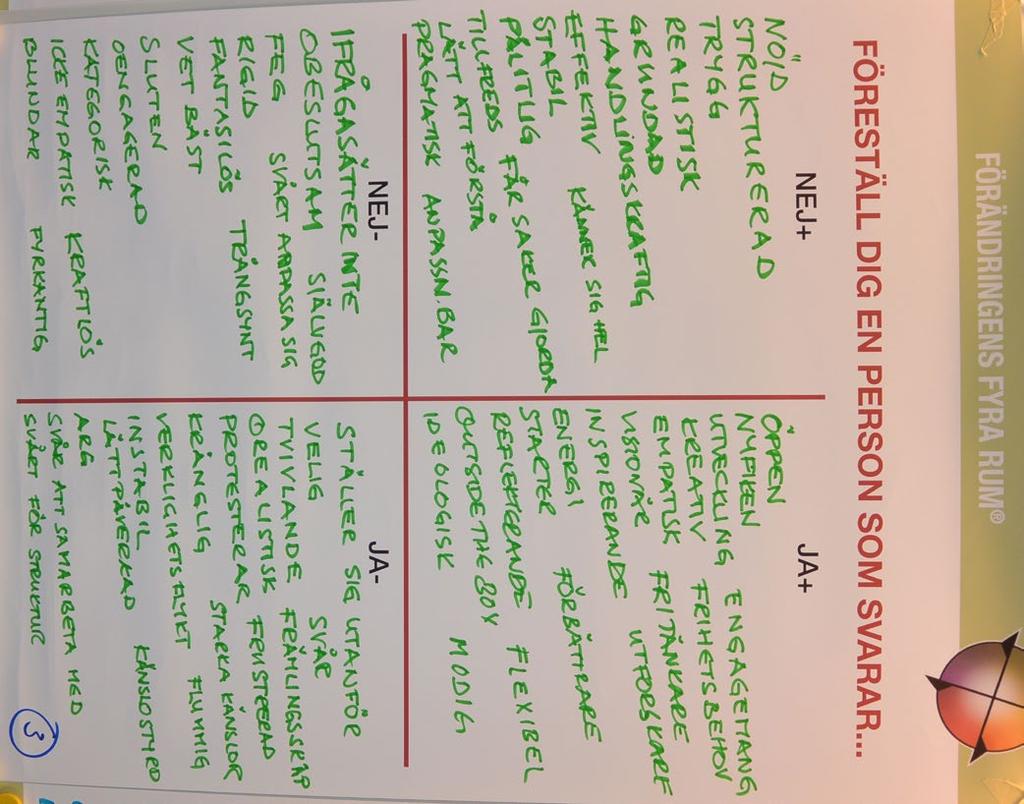 FÖRÄNDRINGENS FYRA RUM®
FÖRESTÄLL DIG EN PERSON SOM SVARAR...
NEJ+
NÖJD
STRUKTURERAD
TRYGG
REALISTISK
GRUNDAD
HANDLINGSKRAFTIG
EFFEKTIV KÄNNER SIG HEL
STABIL
PÅLITLIG FÅR SAKER GJORDA
TILLFREDS
LÄTT ATT FÖRSTÅ
PRAGMATISK ANPASSN.BAR
JA+
ÖPPEN
NYFIKEN ENGAGEMANG
UTVECKLING FRIHETSBEHOV
KREATIV
EMPATISK FRITÄNKARE
VISIONÄR
INSPIRERANDE UTFORSKARE
ENERGI FÖRBÄTTRARE
STARTER
REFLEKTERANDE FLEXIBEL
OUTSIDE THE BOX
IDEOLOGISK MODIG
NEJ-
IFRÅGASÄTTER INTE
OBESLUTSAM SJÄLVGOD
FEG SVÅRT ANPASSA SIG
RIGID
FANTASILÖS TRÅNGSYNT
VET BÄST
SLUTEN
OENGAGERAD
KATEGORISK
ICKE EMPATISK KRAFTLÖS
BLUNDAR FYRKANTIG
JA-
STÄLLER SIG UTANFÖR
VELIG SVÅR
TVIVLANDE FRÄMLINGSSKAP
OREALISTISK FRUSTRERAD
PROTESTERAR STARKA KÄNSLOR
KRÅNGLIG
VERKLIGHETSFLYKT FLUMMIG
INSTABIL
LÄTTPÅVERKAD KÄNSLOSTYRD
ARG
SVÅR ATT SAMARBETA MED
SVÅRT FÖR STRUKTUR
3